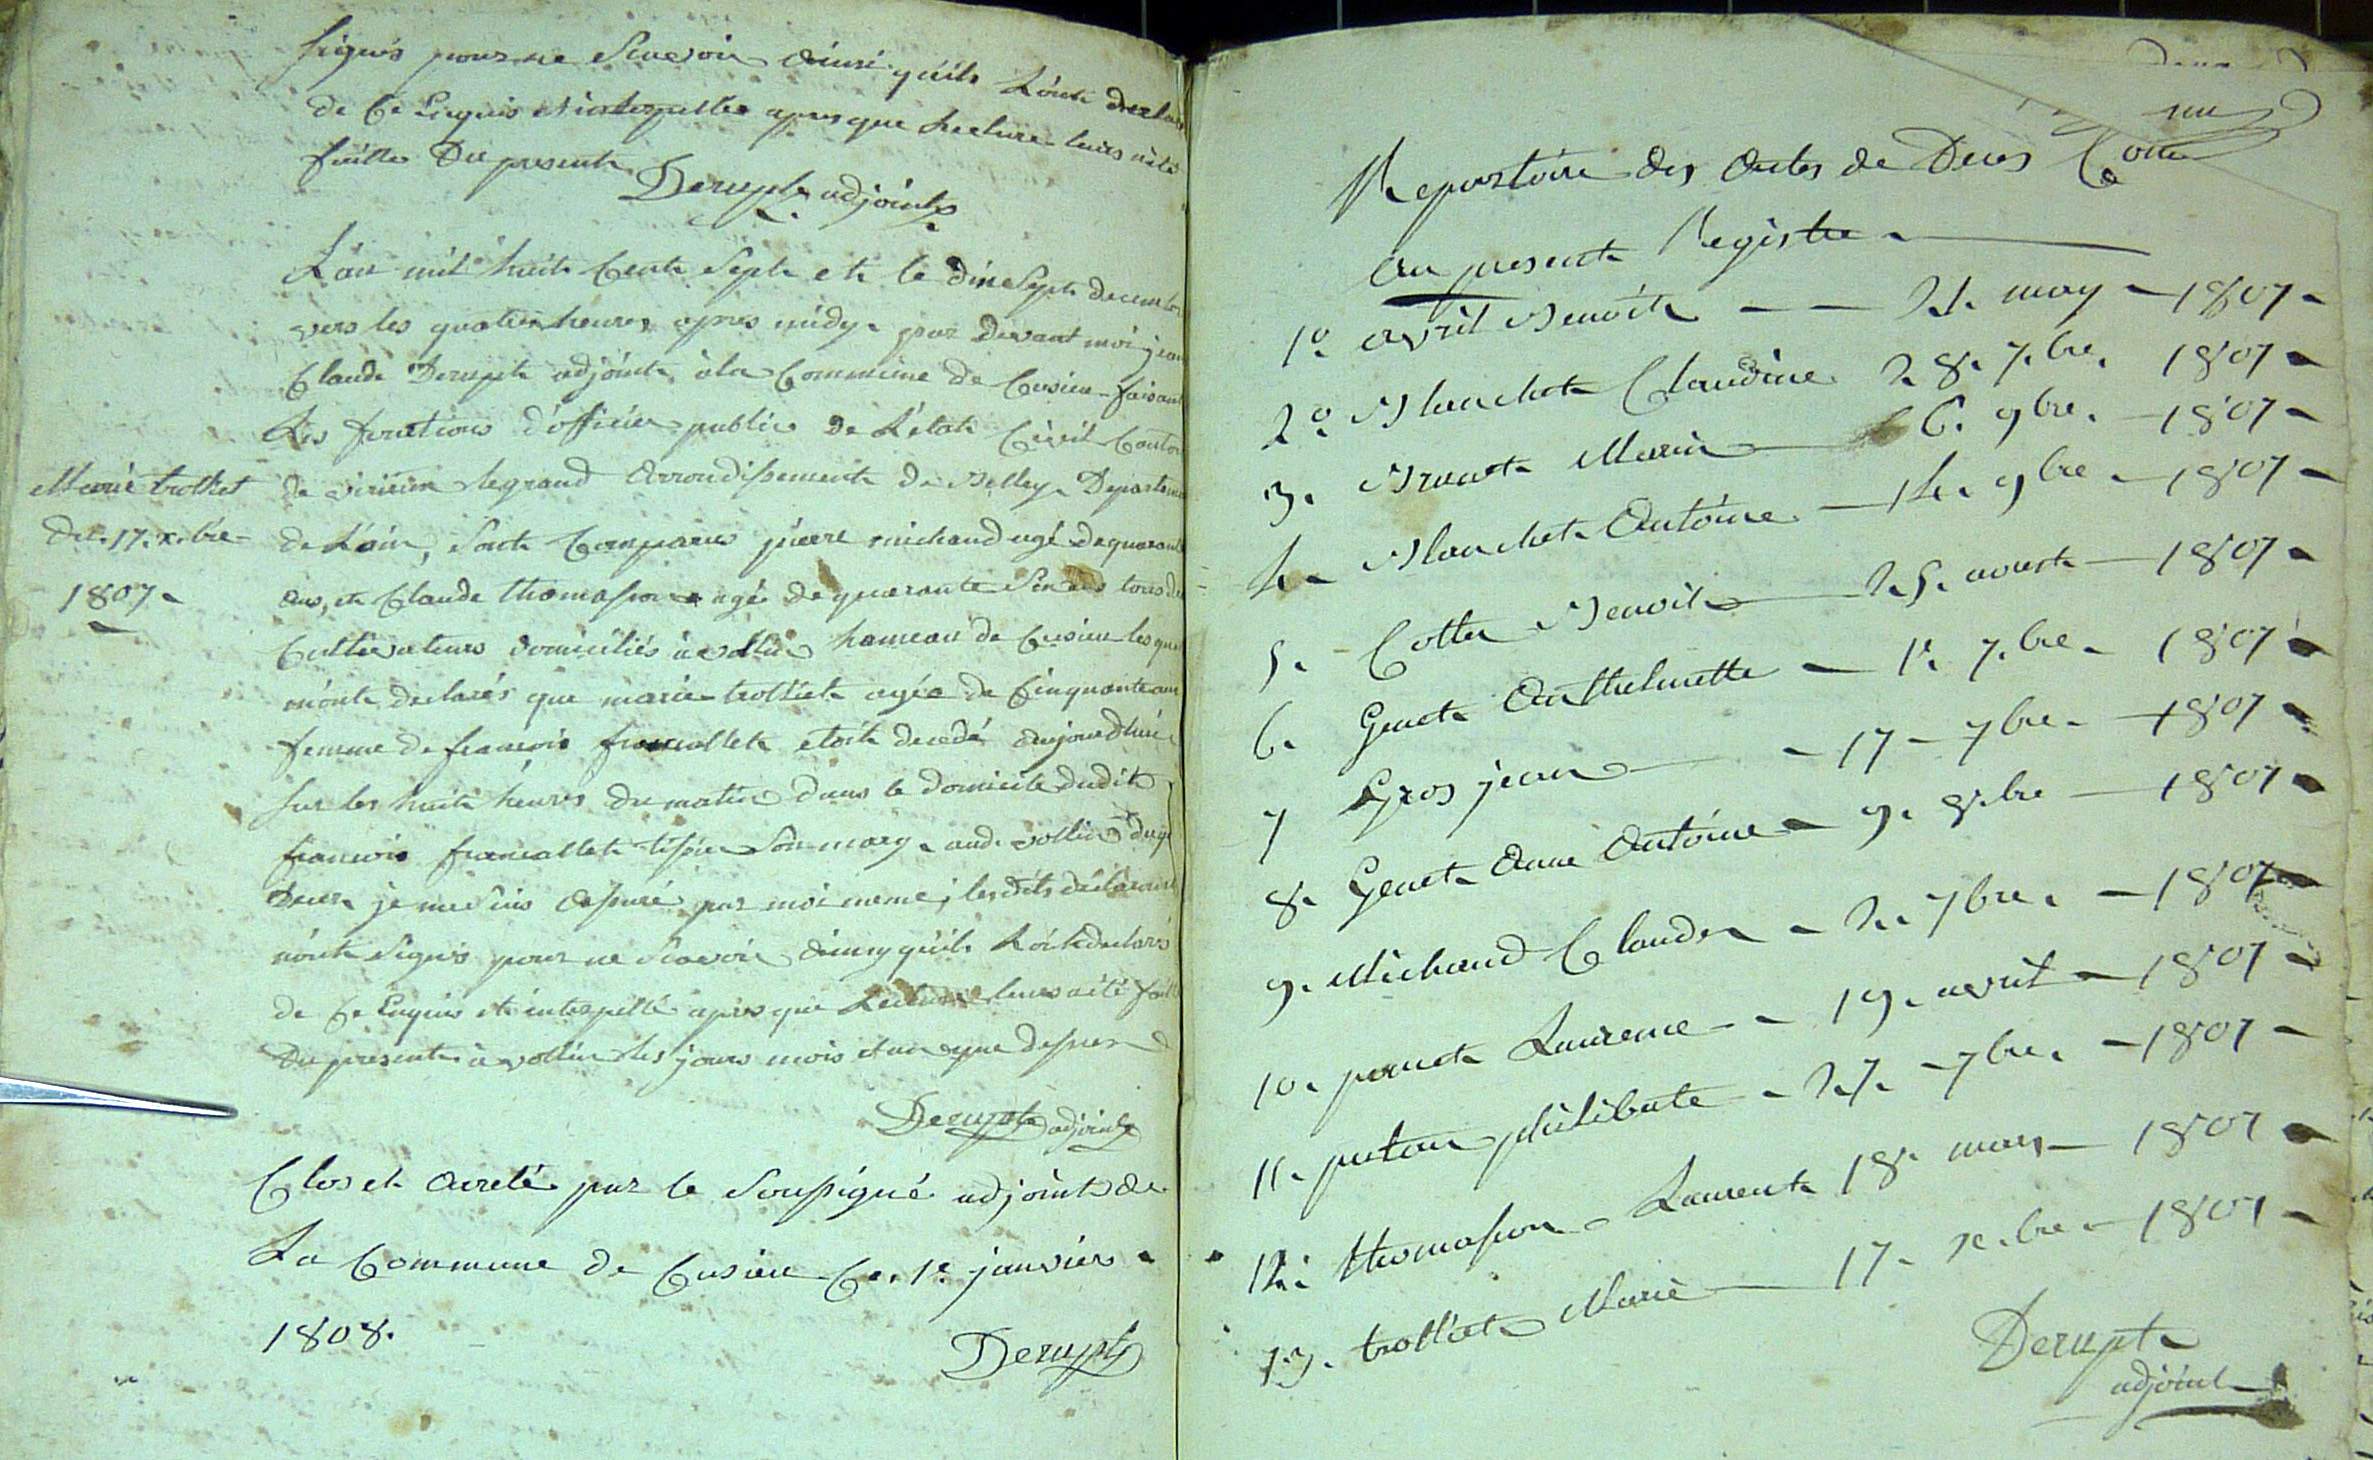 signés pour ne Scavoir ainsi quils L'ont declaré
de Ce Enquis et interpellés apres que lecture leurs a été
faitte Du present
Derupt adjoint
L'an mil huit Cent Sept et le dix Sept decembre
vers les quatre heures apres midy par devant moi jean
Claude Derupt adjoint à la Commune de Cusieu faisant
Les fonctions d'officier public de L'état Civil Canton
de virieu legrand Arrondissement de Belley Departement
Marie trolliet
de L'ain, Sont Comparus pierre michaud agé de quarante
dec. 17. x.bre
ans, et Claude thomasson agé de quarante Six ans tous deux
1807
Cultivateurs domiciliés à vollin hameau de Cusieu lesquels
m'ont declarés que marie trolliet agée de Cinquante ans
femme de francois francallet etoit decedé aujourdhui
Sur les huit heures du matin dans le Domicile dudit
francois francallet tissier Son mary aud. vollin duquel
Deces je me Suis assuré par moi meme; lesdits déclarants
n'ont Signés pour ne Scavoir ainsy quils L'ont declaré
de Ce Enquis et interpellé apres que Lecture leurs a été faitte
Du present à vollin les jours mois et an que dessus
Derupt adjoint
Clos et Arreté par le Soussigné adjoint de
La Commune de Cusieu Ce. 1er janvier
1808.
Derupt
Repertoire des Actes de Deces Conte
nus
Au present Registre
1º. avril Benoit — 21. may 1807
2º. Blanchet Claudine 28. 7.bre. 1807
3. Brunet Marie 6. 9bre. 1807
4. Blanchet Antoine 14. 9bre 1807
5. Cottin Benoit 25. aoust 1807
6. Genet Anthelmette 1er 7.bre 1807
7 Gros jean 17 7bre 1807
8. Genet Anne Antoine 9. 8.bre 1807
9. Michaud Claude 2. 7bre. 1807
10. peruet Laurence 19. avril 1807
11. putour philiberte 27. 7bre. 1807
12. thomasson Laurent 18. mars 1807
13. trolliet Marie 17. x.bre 1807
Derupt
adjoint